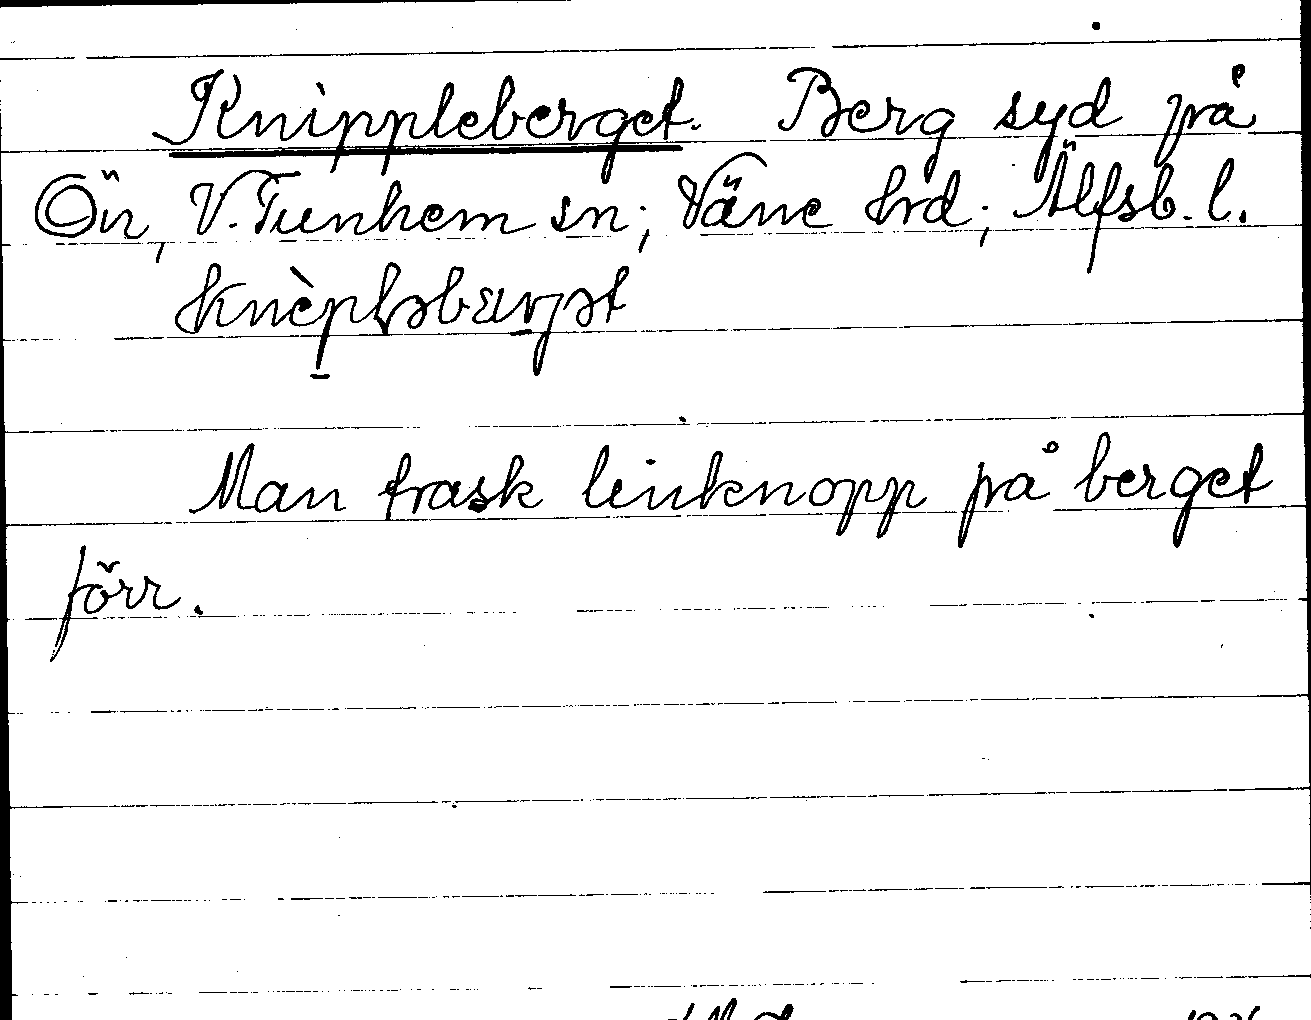 Knippleberget. Berg syd på
Ön, V. Tunhem sn; Väne hrd; Älfsb. l.
Man trask linknopp på berget
förr.